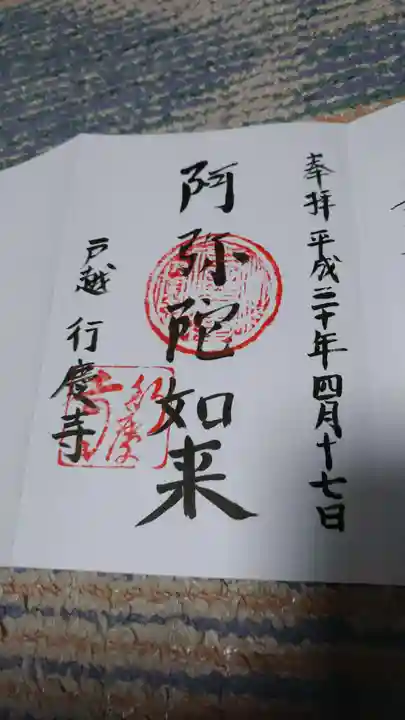 奉拝 平成二十年四月十七日
阿弥陀如来
戸越 行慶寺